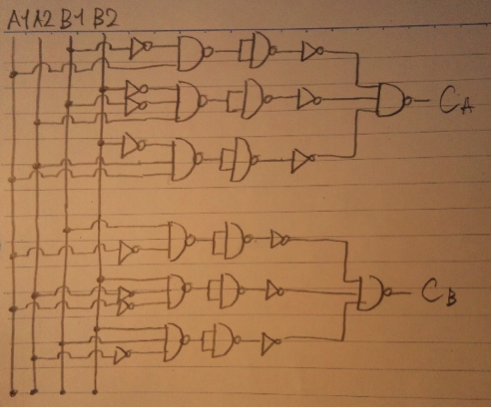 A1 A2 B1 B2
CA
CB